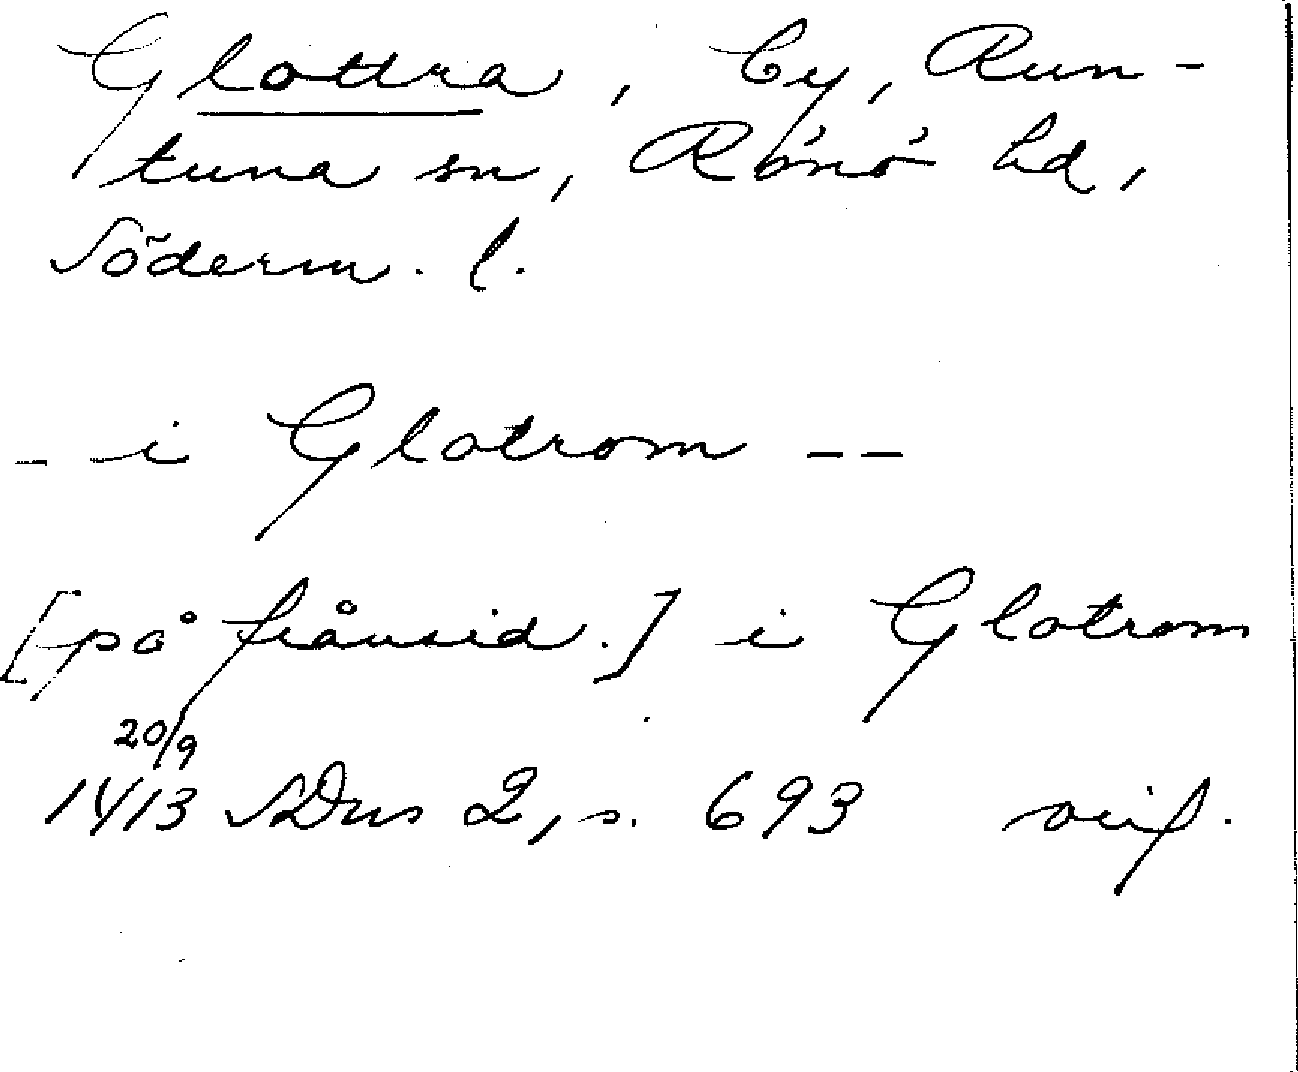 Glottra, by, Run-
tuna sn, Rönö hd,
Söderm. l.
- - i Glotrom - -
[på frånsid.] i Glotrom
20/9
1413 SDns 2, s. 693 orif.